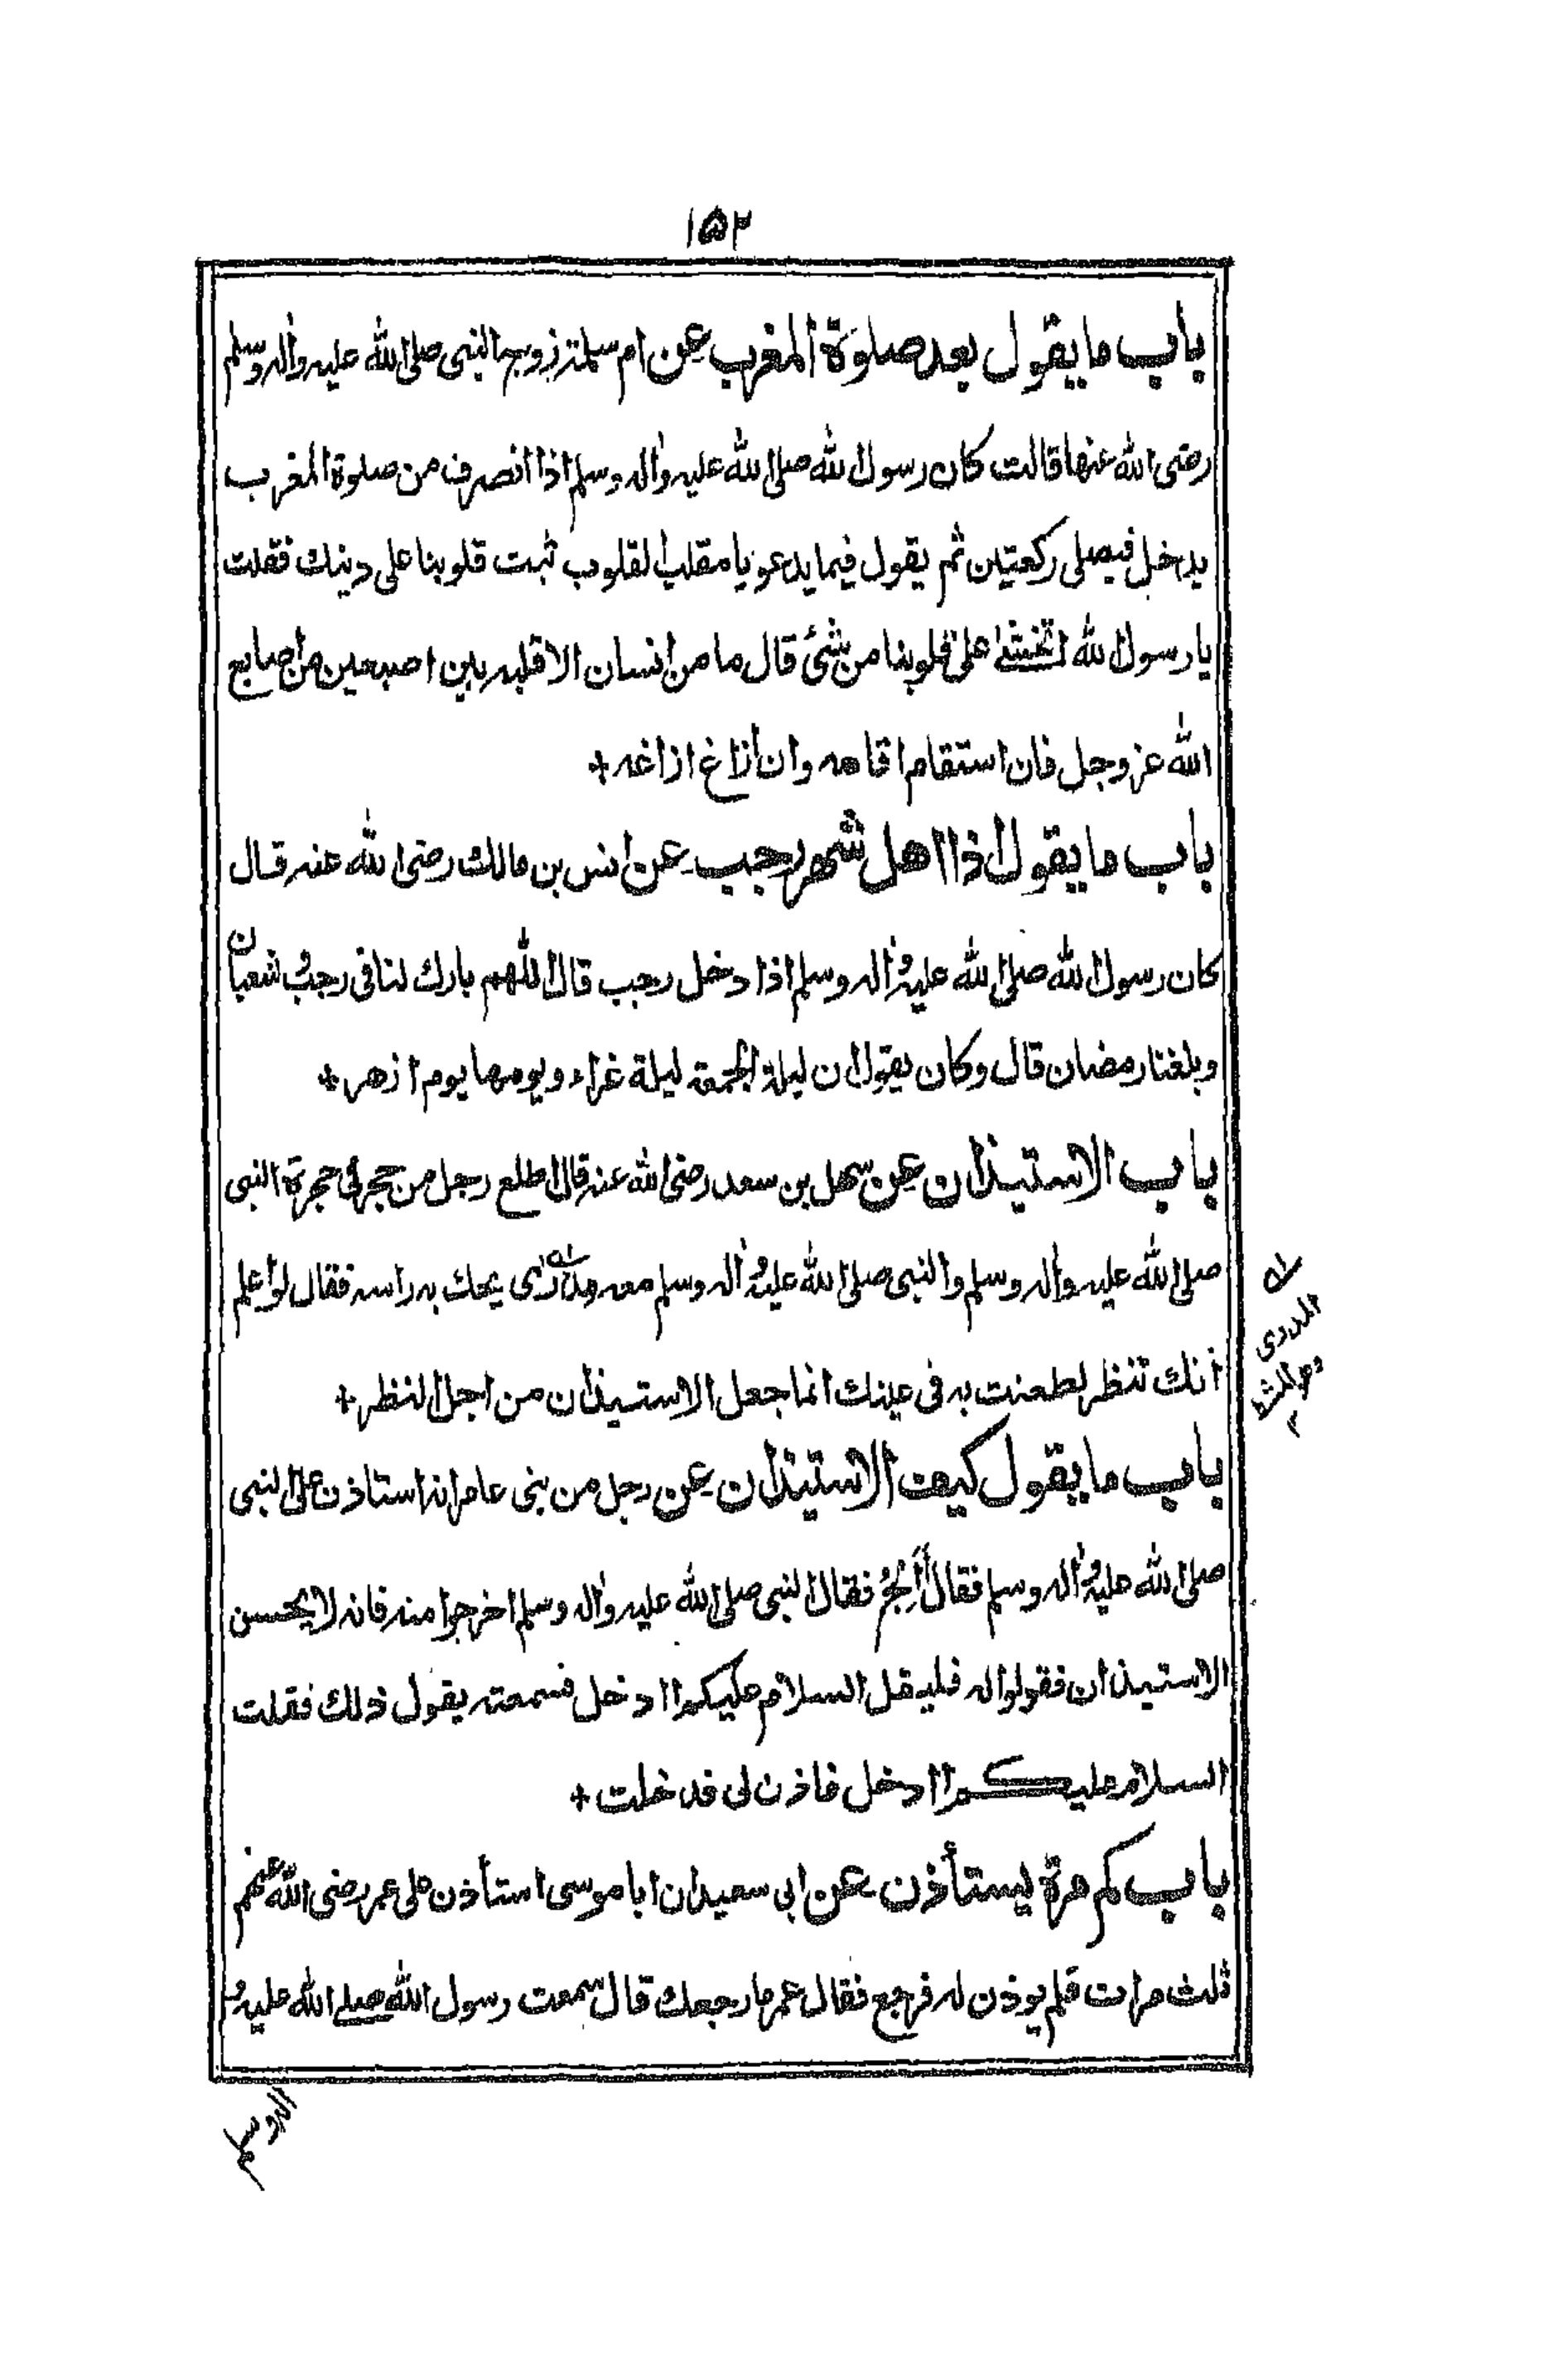 ۱۵۲
باب ما يقول بعد صلوة المغرب عن ام سلمة زوج النبى صلى الله عليه واله وسلم
رضى الله عنها قالت كان رسول الله صلى الله عليه واله وسلم اذا انصرف من صلوة المغرب
يدخل فيصلى ركعتين ثم يقول فيما يدعو يا مقلب القلوب ثبت قلوبنا على دينك فقلت
يا رسول الله اتخشى على قلوبنا من شئ قال ما من انسان الا قلبه بين اصبعين من اصابع
الله عز وجل فان استقام اقامه وان ازاغ ازاغه +
باب ما يقول اذا اهل شهر رجب عن انس بن مالك رضى الله عنه قال
كان رسول الله صلى الله عليه واله وسلم اذا دخل رجب قال اللهم بارك لنا فى رجب وشعبان
وبلغنا رمضان قال وكان يقول ان ليلة الجمعة ليلة غراء ويومها يوم ازهر +
باب الاستيذان عن سهل بن سعد رضى الله عنه قال اطلع رجل من حجر فى حجرة النبى
صلى الله عليه واله وسلم والنبى صلى الله عليه واله وسلم معه مدرى يحك به راسه فقال لو اعلم
أنك تنظر لطعنت به فى عينك انما جعل الاستيذان من اجل النظر +
المدرى
باب ما يقول كيف الاستيذان عن رجل من بنى عامر انه استاذن على النبى
صلى الله عليه واله وسلم فقال أَأَلِجُ فقال النبى صلى الله عليه واله وسلم اخرجوا منه فانه لا يحسن
الاستيذان فقولوا له فليقل السلام عليكم اادخل فسمعته يقول ذلك فقلت
السلام عليكم اادخل فاذن لى فدخلت +
باب كم مرة يستأذن عن ابى سعيد ان ابا موسى استأذن على عمر رضى الله عنهم
ثلث مرات فلم يوذن له فرجع فقال عمر ما رجعك قال سمعت رسول الله صلى الله عليه و
اله وسلم